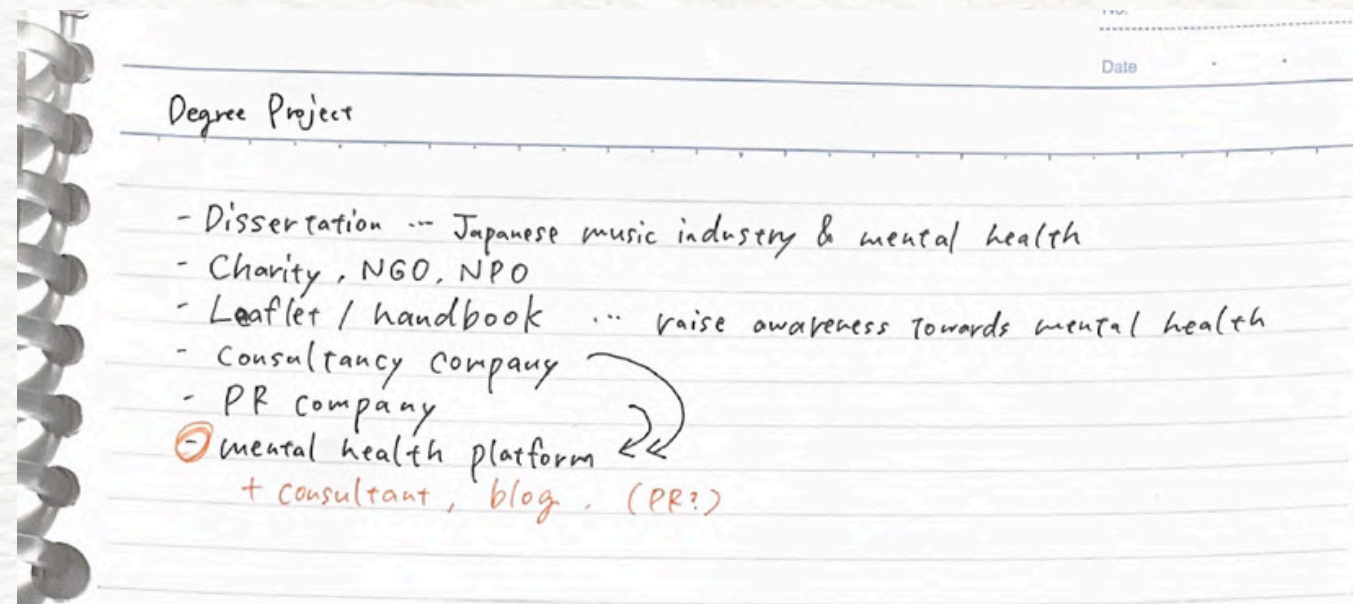 Date
Degree Project
- Dissertation ... Japanese music industry & mental health
- Charity, NGO, NPO
- Leaflet / handbook ... raise awareness towards mental health
- Consultancy company
- PR company
- mental health platform
+ consultant, blog, (PR?)